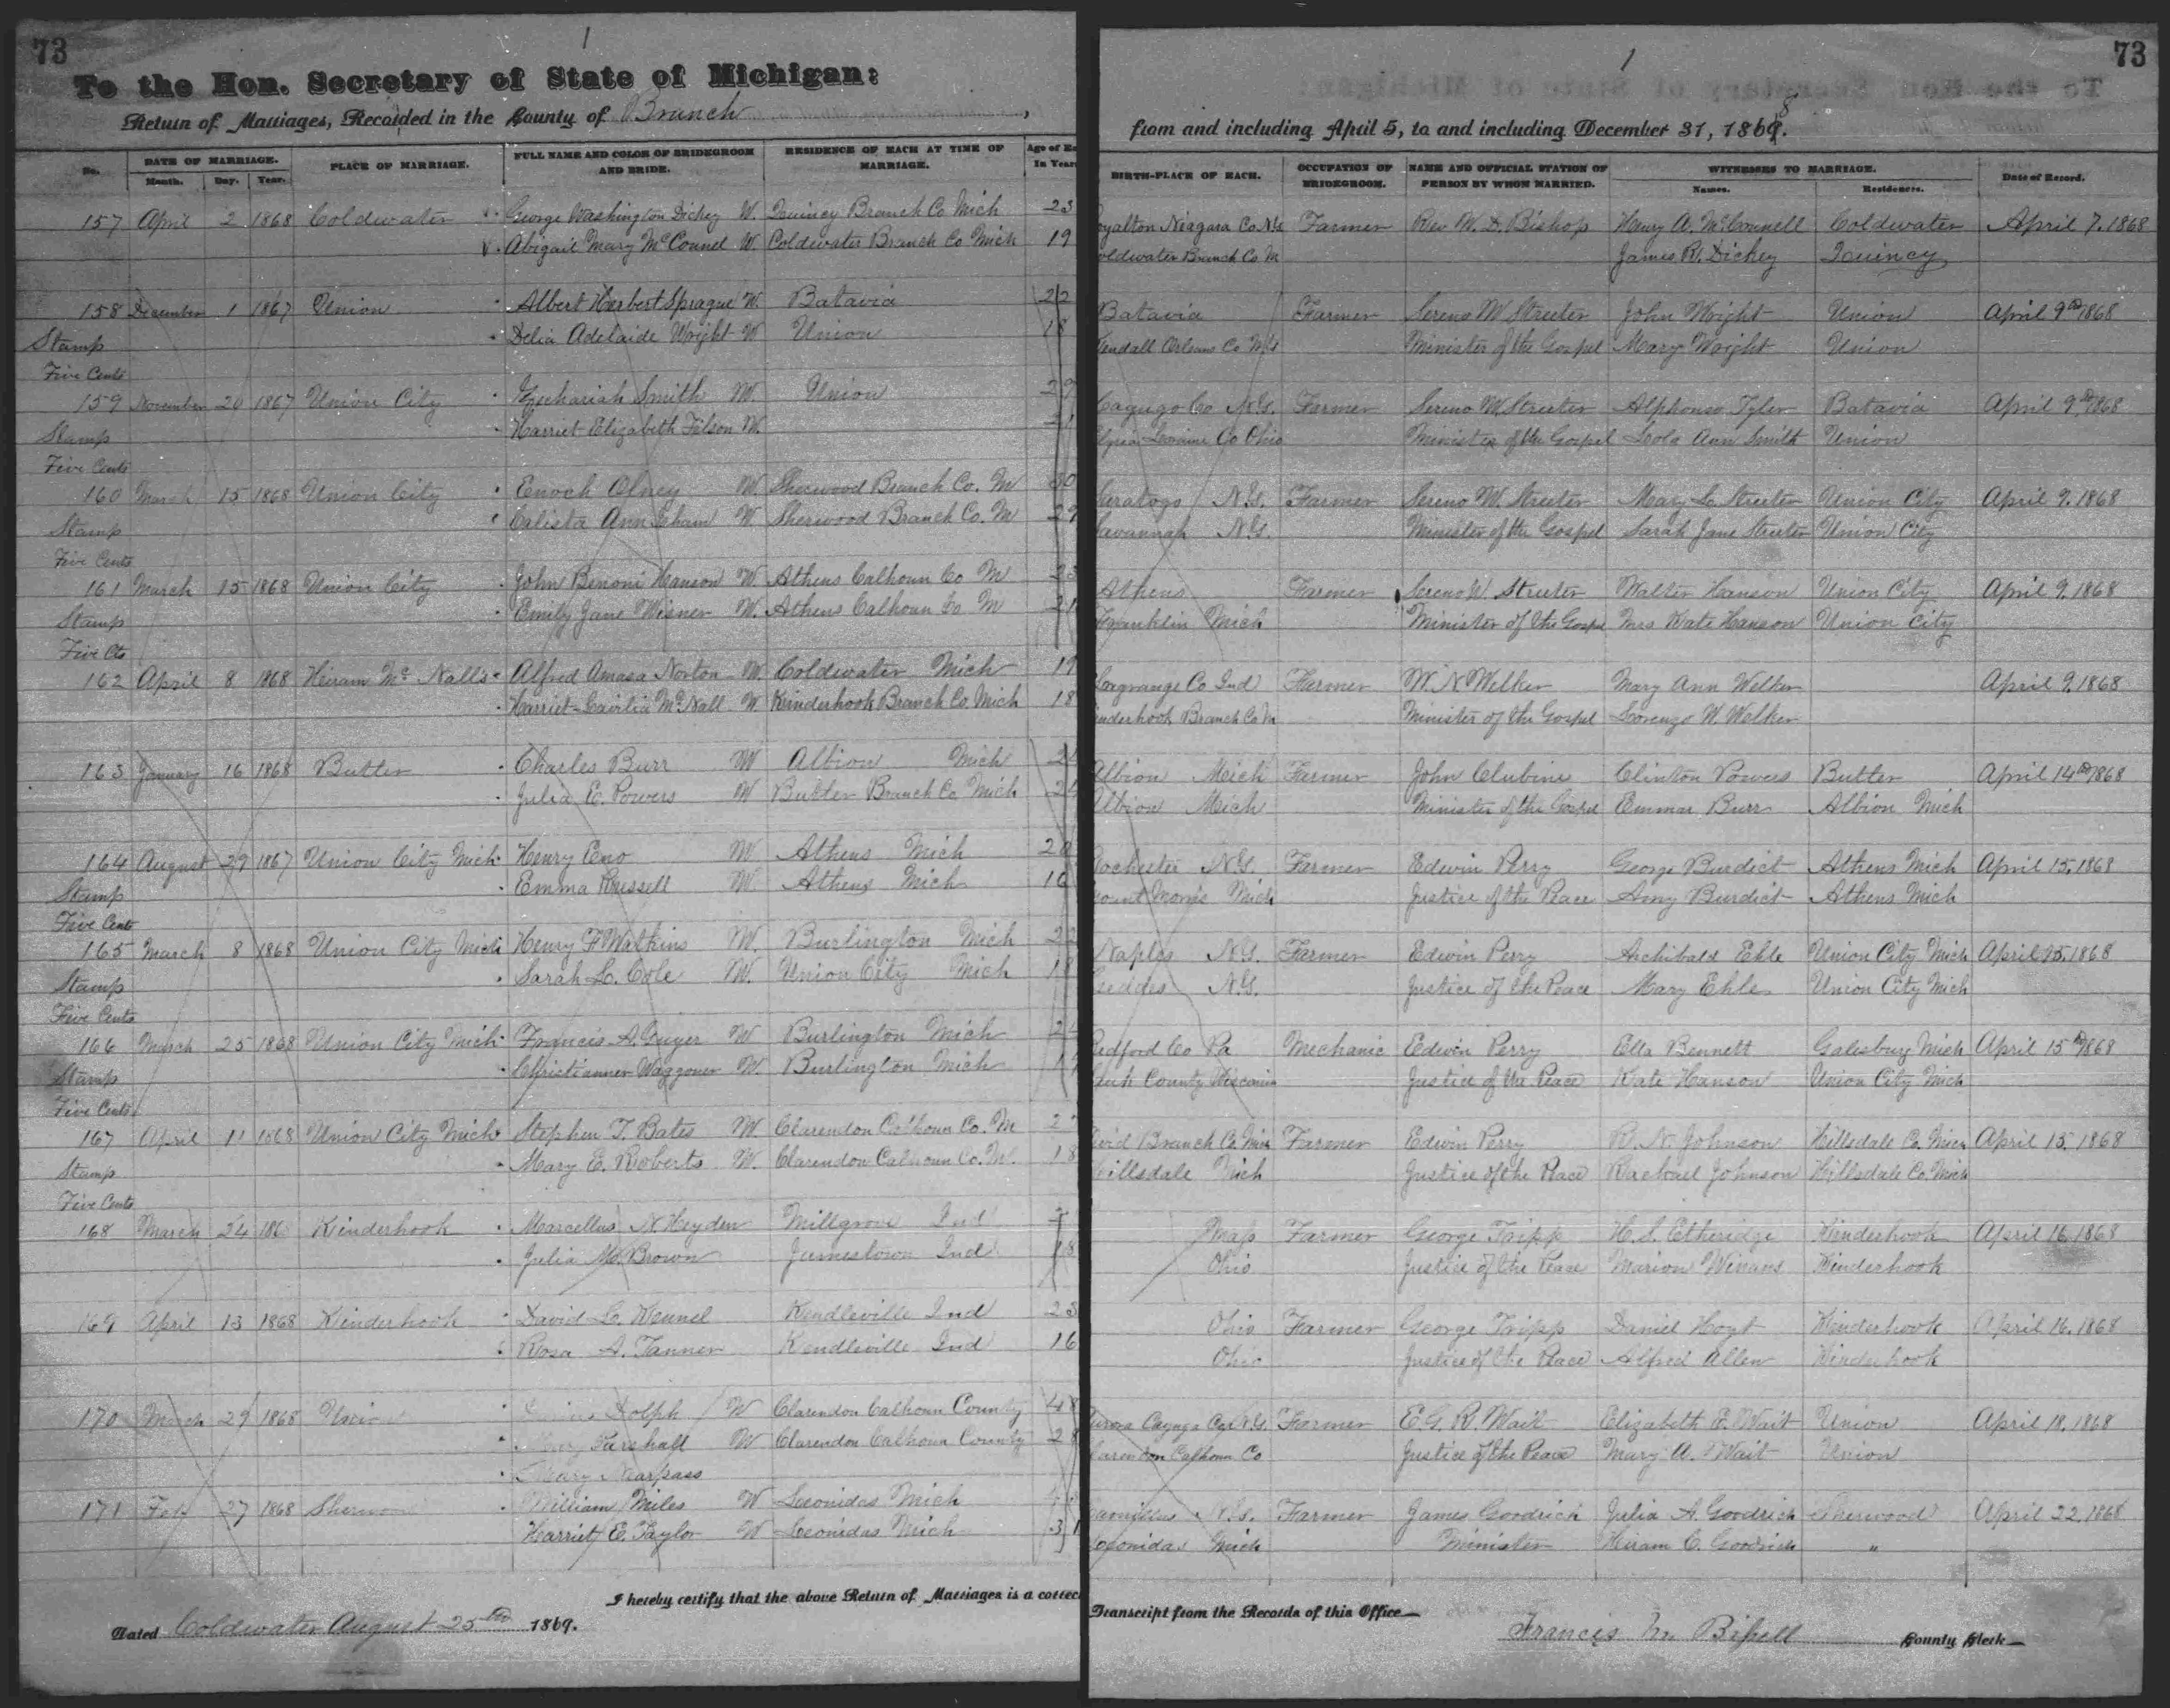 73
1
To the Hon. Secretary of State of Michigan:
Return of Marriages, Recorded in the County of Branch,
No. DATE OF MARRIAGE. PLACE OF MARRIAGE. FULL NAME AND COLOR OF BRIDEGROOM AND BRIDE. RESIDENCE OF EACH AT TIME OF MARRIAGE. Age of Ea
Month. Day. Year. In Years
157 April 2 1868 Coldwater George Washington Dickey W. Quincy Branch Co Mich 23
Abigail Mary McConnel W Coldwater Branch Co Mich 19
158 December 1 1867 Union Albert Herbert Sprague W. Batavia 22
Stamp Delia Adelaide Wright W Union 18
Five Cents
159 November 20 1867 Union City Zachariah Smith W. Union 29
Stamp Harriet Elizabeth Filson W. 21
Five Cents
160 March 15 1868 Union City Enoch Olney W. Sherwood Branch Co. M 30
Stamp Calista Ann Isham W Sherwood Branch Co. M 29
Five Cents
161 March 15 1868 Union City John Benoni Hanson W Athens Calhoun Co M 23
Stamp Emily Jane Wisner W. Athens Calhoun Co M 21
Five Cts
162 April 8 1868 Heiram Mc Nalls Alfred Amasa Norton W. Coldwater Mich 19
Harriet McNall W Kinderhook Branch Co. Mich 18
163 January 16 1868 Butler Charles Burr W Albion Mich
Julia E. Powers W Butler Branch Co Mich
164 August 29 1867 Union City Mich Henry Eno W Athens Mich 20
Stamp Emma Russell W. Athens Mich 16
Five Cents
165 March 8 1868 Union City Mich Henry F Watkins W. Burlington Mich 22
Stamp Sarah L. Cole W. Union City Mich 18
Five Cents
166 March 25 1868 Union City Mich Francis A. W Burlington Mich
Stamp Christianner Waggoner W. Burlington Mich
Five Cents
167 April 11 1868 Union City Mich Stephen T. Bates W. Clarendon Calhoun Co. M
Stamp Mary E. Roberts W. Clarendon Calhoun Co. M. 18
Five Cents
168 March 24 Kinderhook Marcellus N. Heyden Millgrove Ind
Julia M. Brown Jamestown Ind 18
169 April 13 1868 Kinderhook David L. Kennel Kendleville Ind 23
Rosa A. Tanner Kendleville Ind 16
170 March 29 1868 Union Dolph W Clarendon Calhoun County 48
Mary W Clarendon Calhoun County 28
Mary Nearpass
171 Feb 27 1868 William Miles W Leonidas Mich
Harriet E. Taylor W Leonidas Mich 31
I hereby certify that the above Return of Marriages is a correc
Dated Coldwater August 25th 1869.
1
73
from and including April 5, to and including December 31, 1868.
BIRTH-PLACE OF EACH. OCCUPATION OF BRIDEGROOM. NAME AND OFFICIAL STATION OF PERSON BY WHOM MARRIED. WITNESSES TO MARRIAGE. Date of Record.
Names. Residences.
oyalton Niagara Co N.Y. Farmer Rev W. D. Bishop Henry A. McConnell Coldwater April 7. 1868
oldwater Branch Co M James R. Dickey Quincy
Batavia Farmer Sereno W Streeter John Wright Union April 9th 1868
Kendall Orleans Co N.Y. Minister of the Gospel Mary Wright Union
Cayugo Co N.Y. Farmer Sereno W. Streeter Alphonso Tyler Batavia April 9th 1868
Co Ohio Minister of the Gospel Ann Smith Union
Saratoga N.Y. Farmer Sereno W. Streeter Mary L. Streeter Union City April 9. 1868
Savannah N.Y. Minister of the Gospel Sarah Jane Streeter Union City
Athens Farmer Sereno W. Streeter Walter Hanson Union City April 9. 1868
Franklin Mich Minister of the Gospel Mrs Kate Hanson Union City
Lagrange Co Ind Farmer W. N Welker Mary Ann Welker April 9. 1868
inderhook Branch Co M Minister of the Gospel Lorenzo W. Welker
Albion Mich Farmer John Clubine Clinton Powers Butler April 14th 1868
Albion Mich Minister of the Gospel Emmar Burr Albion Mich
Rochester N.Y. Farmer Edwin Perry George Burdict Athens Mich April 15. 1868
ount Morris Mich Justice of the Peace Amy Burdict Athens Mich
Naples N.Y. Farmer Edwin Perry Archibald Ehle Union City Mich April 15. 1868
Geddes N.Y. Justice of the Peace Mary Ehle Union City Mich
Bedford Co Pa Mechanic Edwin Perry Ella Bennett Galesburg Mich April 15th 1868
County Wisconsin Justice of the Peace Kate Hanson Union City Mich
Branch Co Mich Farmer Edwin Perry R. N. Johnson Hillsdale Co. Mich April 15. 1868
Hillsdale Mich Justice of the Peace Rachael Johnson Hillsdale Co. Mich
Farmer George Tripp H. S. Etheridge Kinderhook April 16. 1868
Ohio Justice of the Peace Marion Winans Kinderhook
Ohio Farmer George Tripp Daniel Hoyt Kinderhook April 16. 1868
Ohio Justice of the Peace Alfred Allen Kinderhook
Cayuga Co N.Y. Farmer E. G. R. Wait Elizabeth E. Wait Union April 18. 1868
larendon Calhoun Co Justice of the Peace Mary A. Wait Union
amillus N.Y. Farmer James Goodrich Julia A. Goodrich Sherwood April 22. 1868
Leonidas Mich Minister Hiram C. Goodrich "
Transcript from the Records of this Office
Francis M Bissell County Clerk